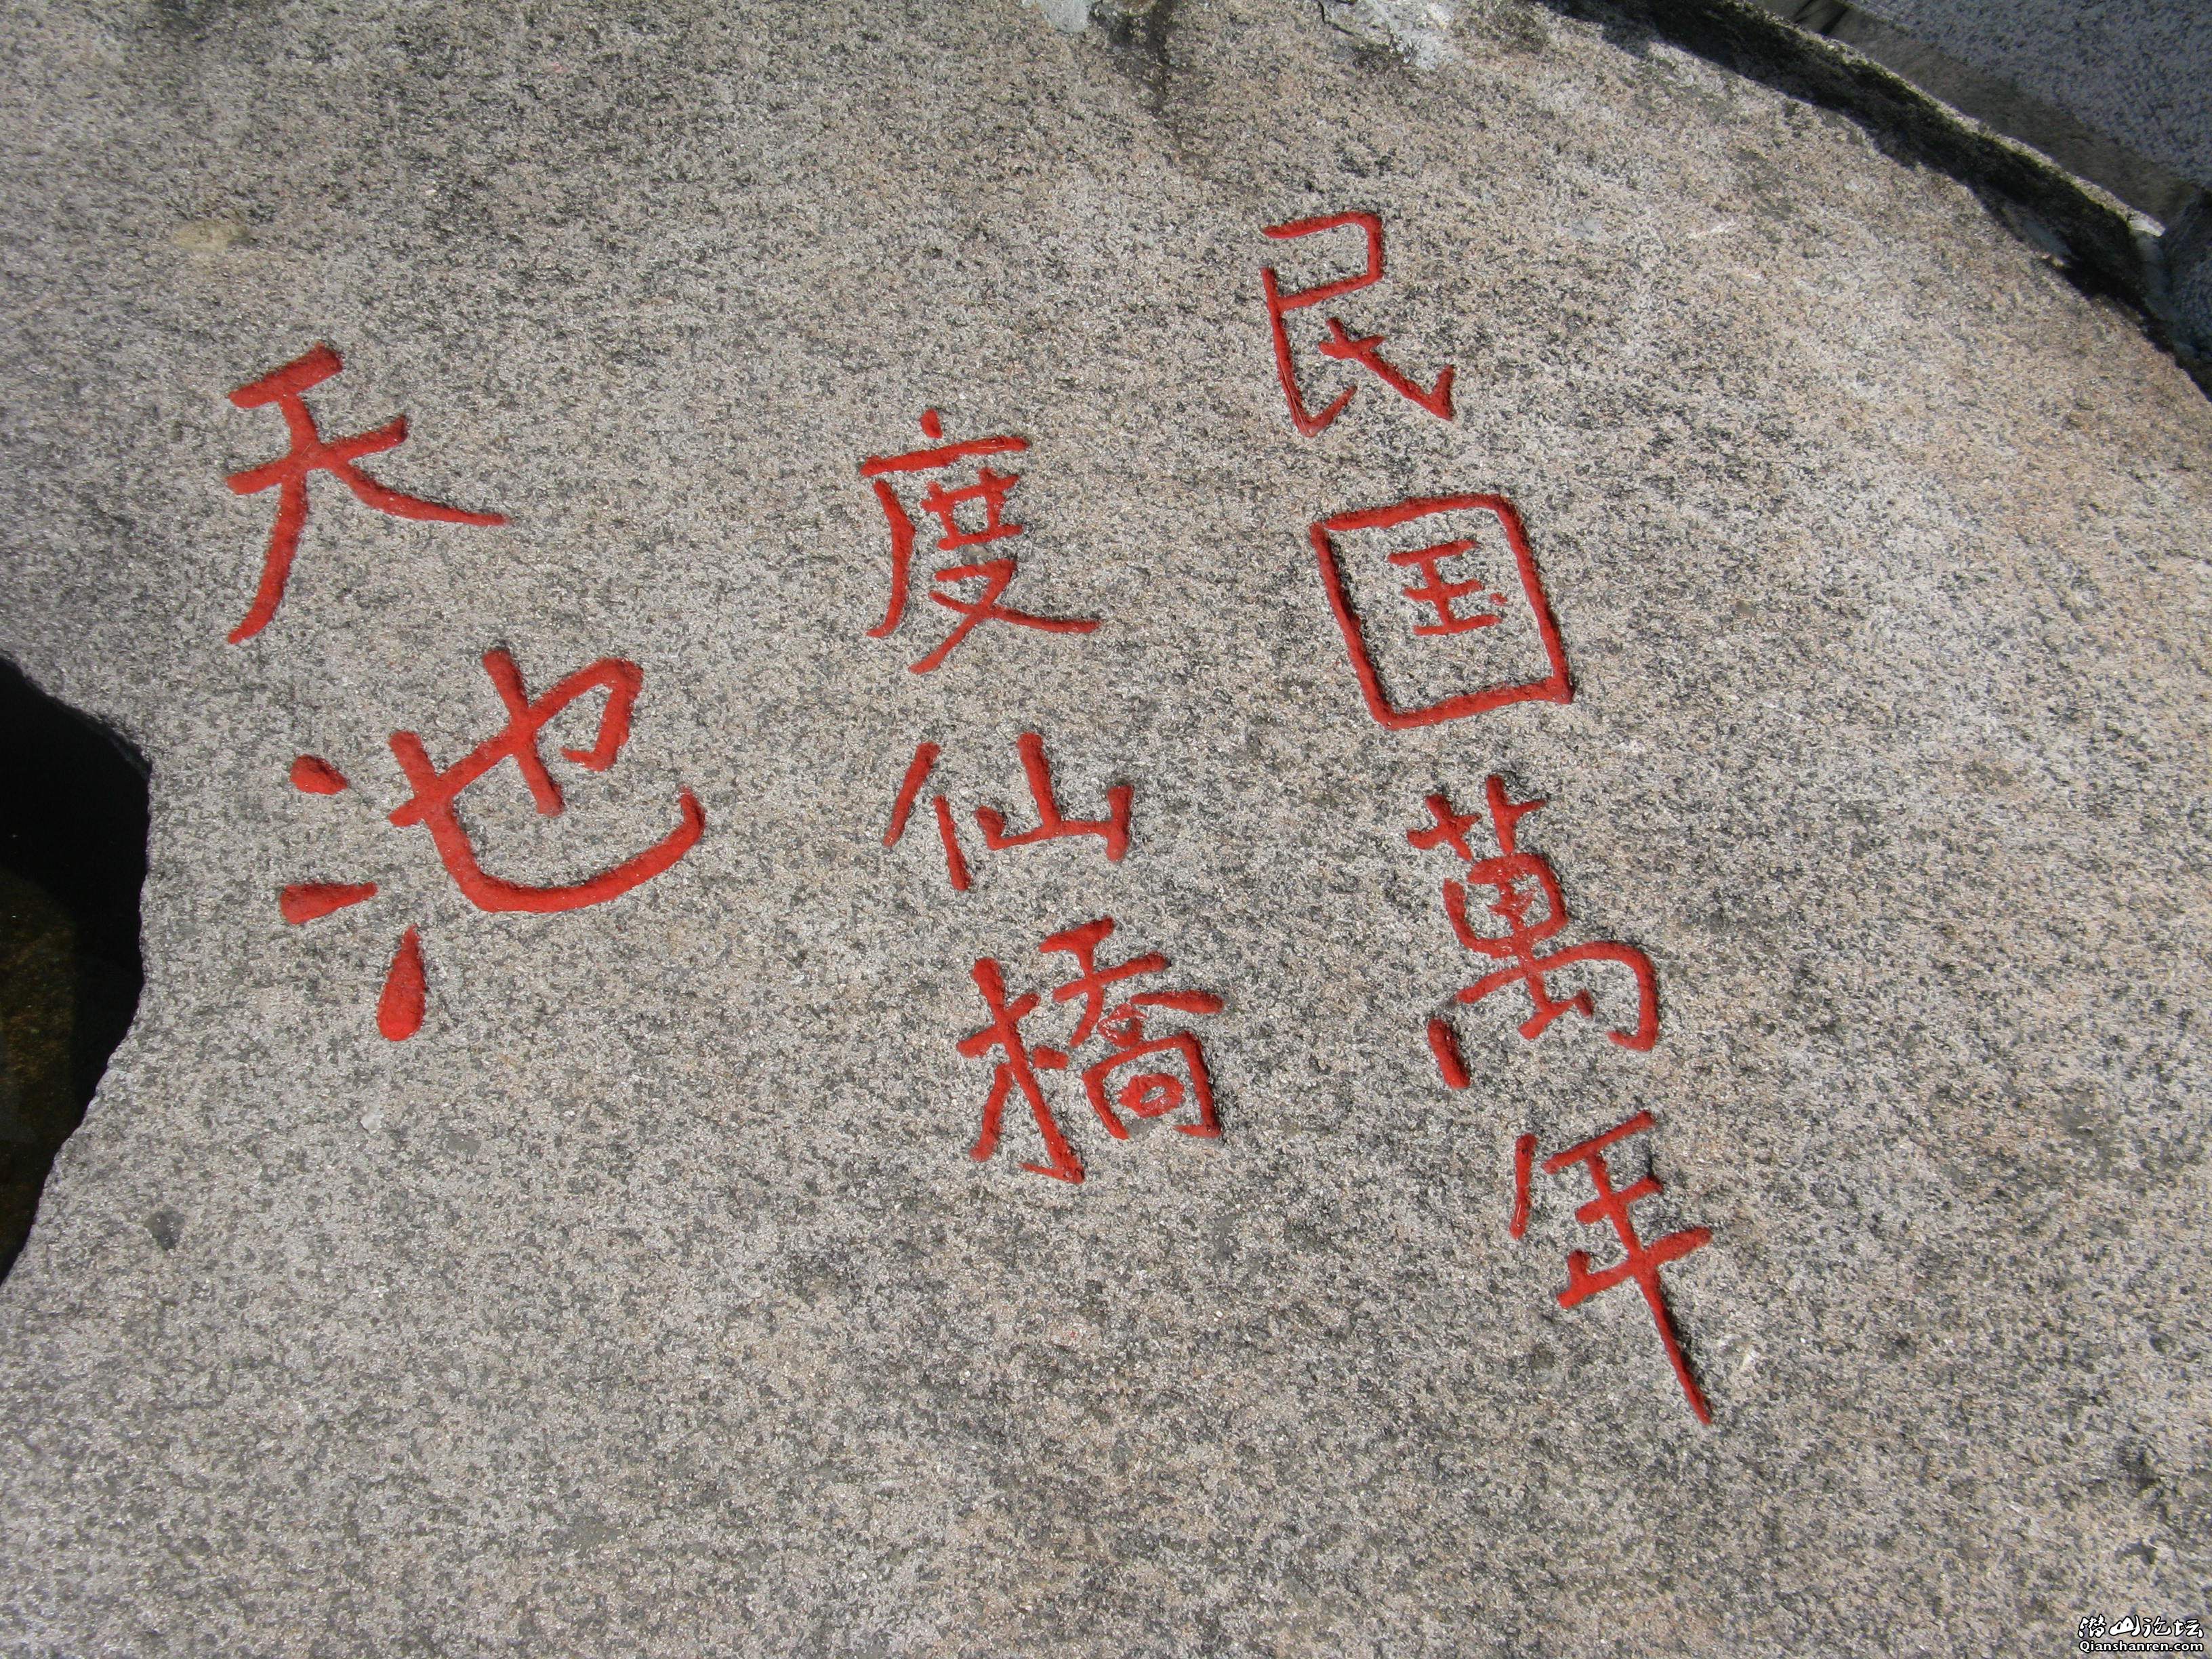 民国萬年
度仙橋
天池
潜山论坛
Qianshanren.com